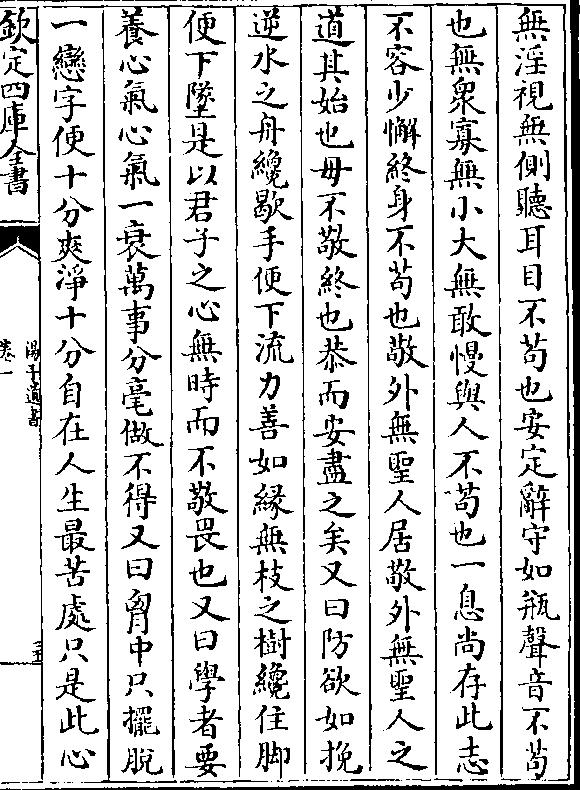 無淫視無側聽耳目不苟也安定辭守如瓶聲音不苟
也無衆寡無小大無敢慢與人不苟也一息尚存此志
不容少懈終身不苟也敬外無聖人居敬外無聖人之
道其始也毋不敬終也恭而安盡之矣又曰防欲如挽
逆水之舟纔歇手便下流力善如緣無枝之樹纔住脚
便下墜是以君子之心無時而不敬畏也又曰學者要
養心氣心氣一衰萬事分毫做不得又曰胷中只擺脫
一戀字便十分爽淨十分自在人生最苦處只是此心
欽定四庫全書
湯子遺書
卷一